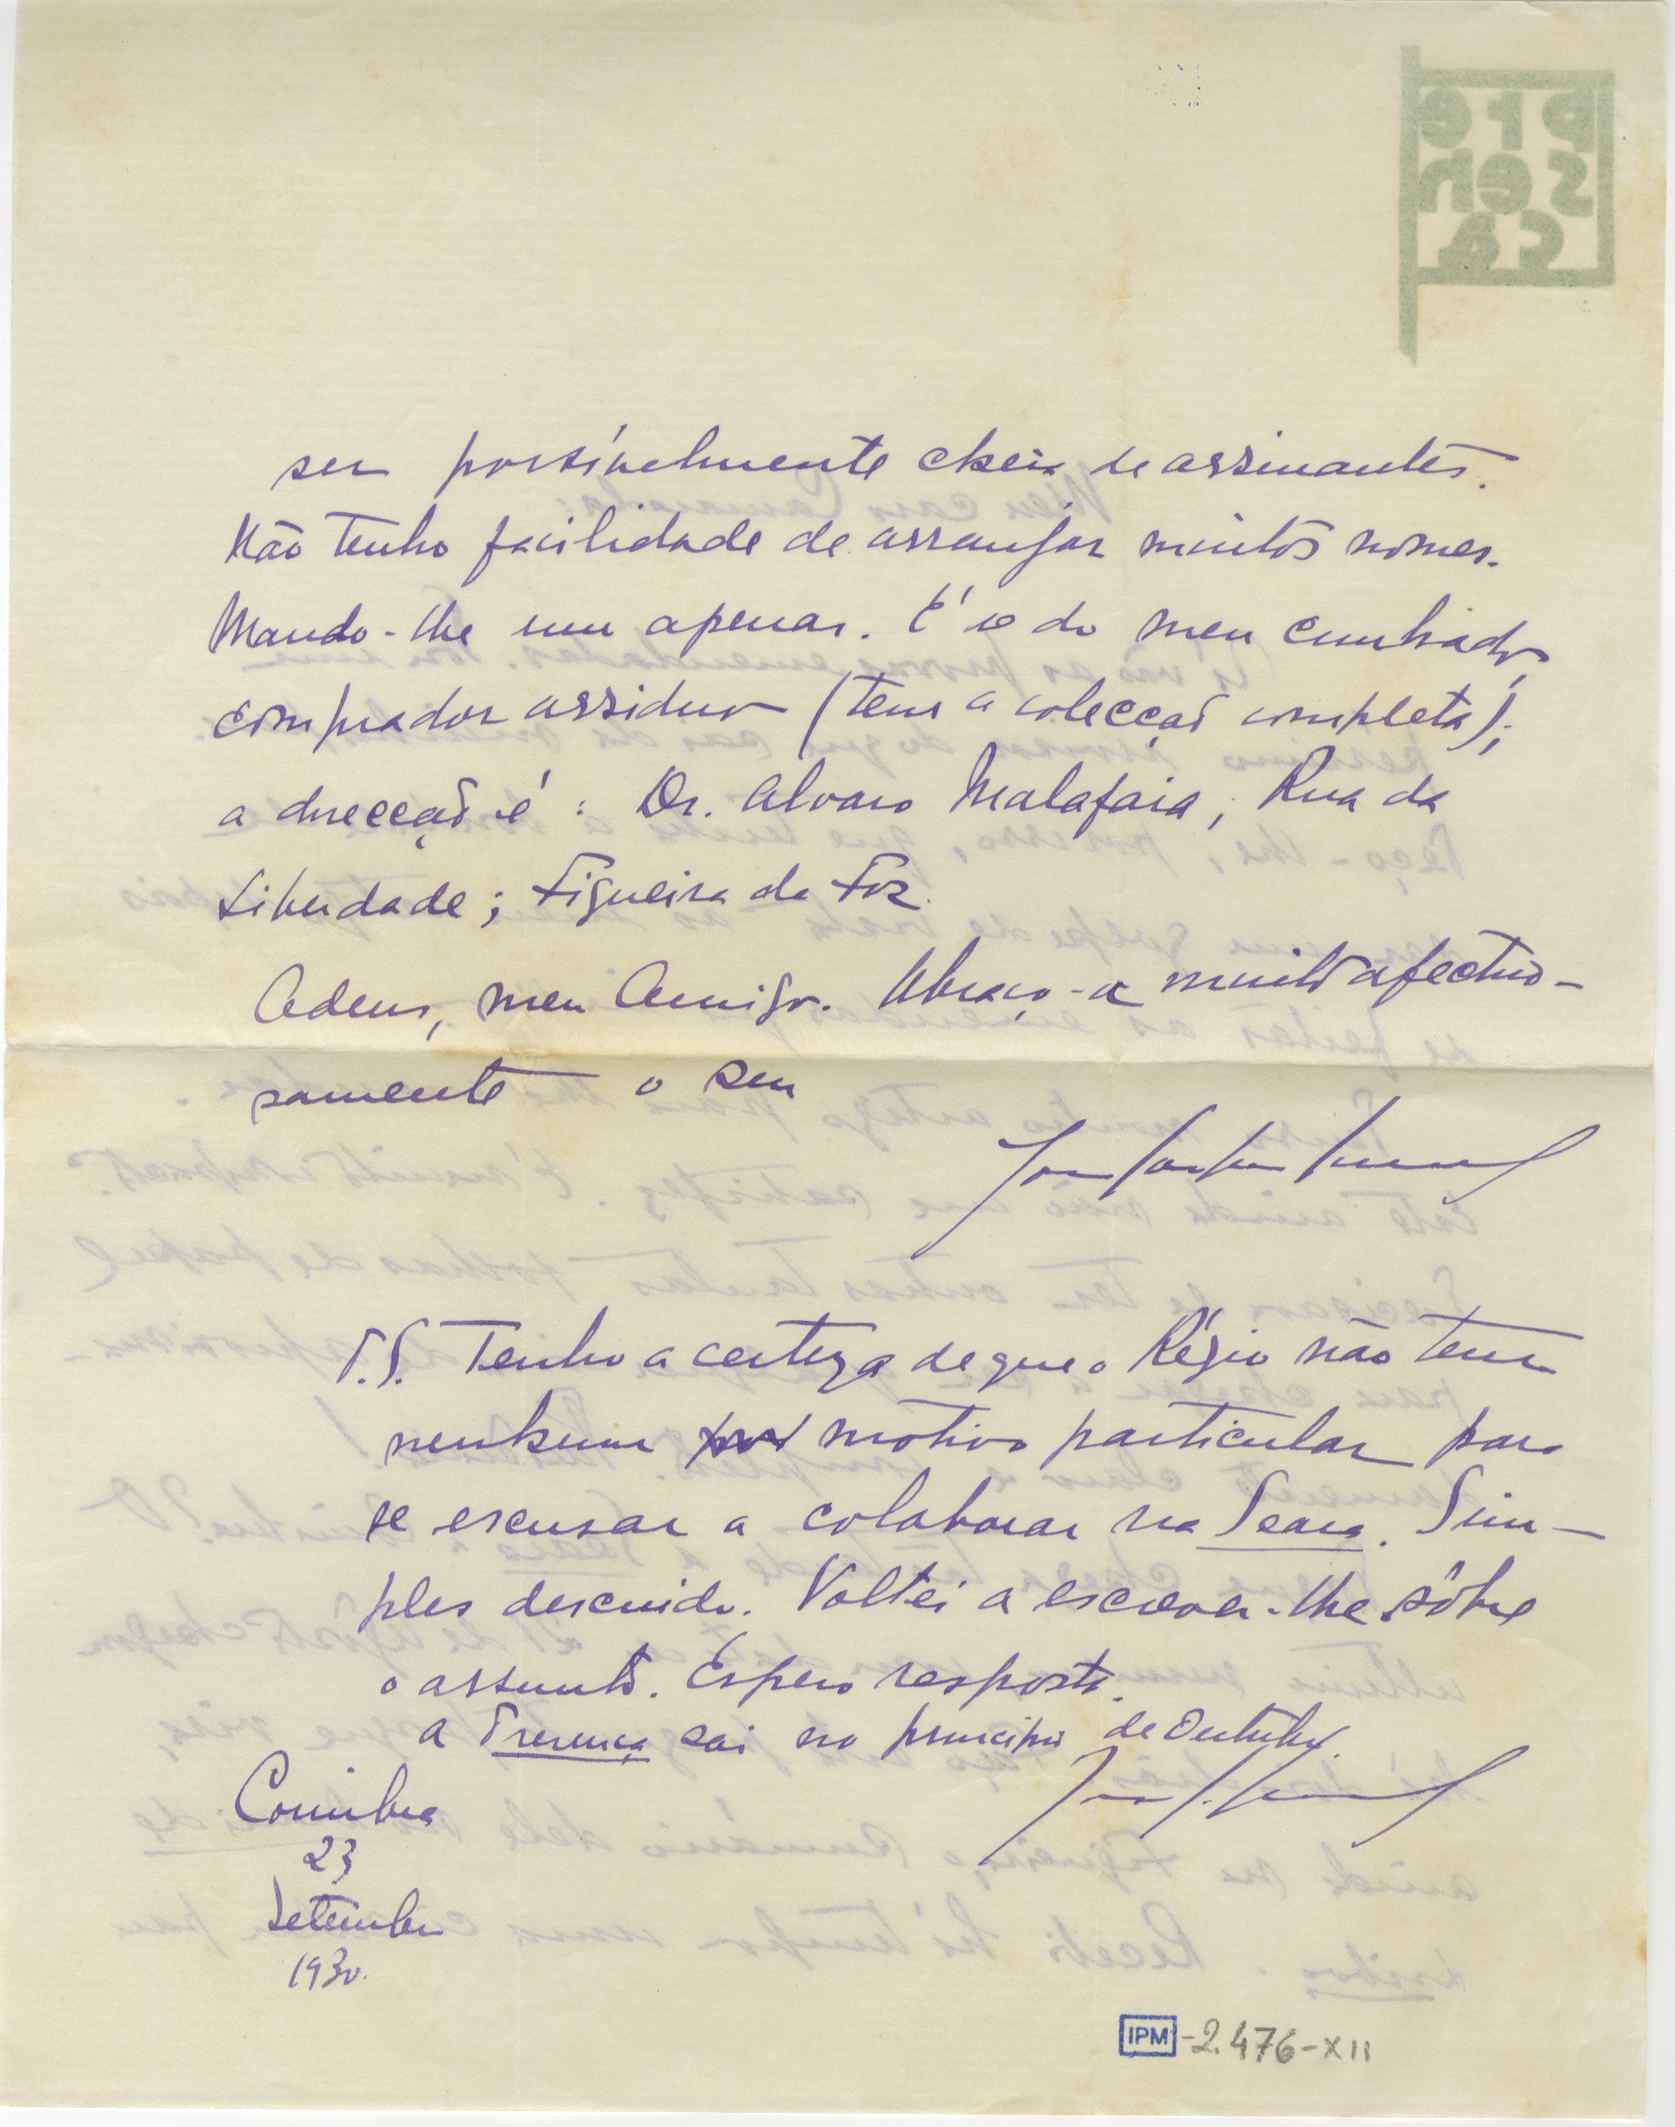 pre
sen
ça
ser possívelmente cheia de assinantes.
Não tenho facilidade de arranjar muitos nomes.
Mando-lhe um apenas. É o do meu cunhado,
comprador assiduo (tem a colecção completa);
a direcção é: Dr. Alvaro Malafaia; Rua da
Liberdade; Figueira da Foz.
Adeus, meu Amigo. Abraça-o muito afectuo-
samente o seu
P.S. Tenho a certeza de que o Régio não tem
nenhum motivo particular para
se escusar a colaborar na Seara. Sim-
ples descuido. Voltei a escrever-lhe sôbre
o assunto. Espero resposta.
A Presença sai no principio de Outubro.
Coimbra
23
Setembro
1930.
IPM -2.476-XII